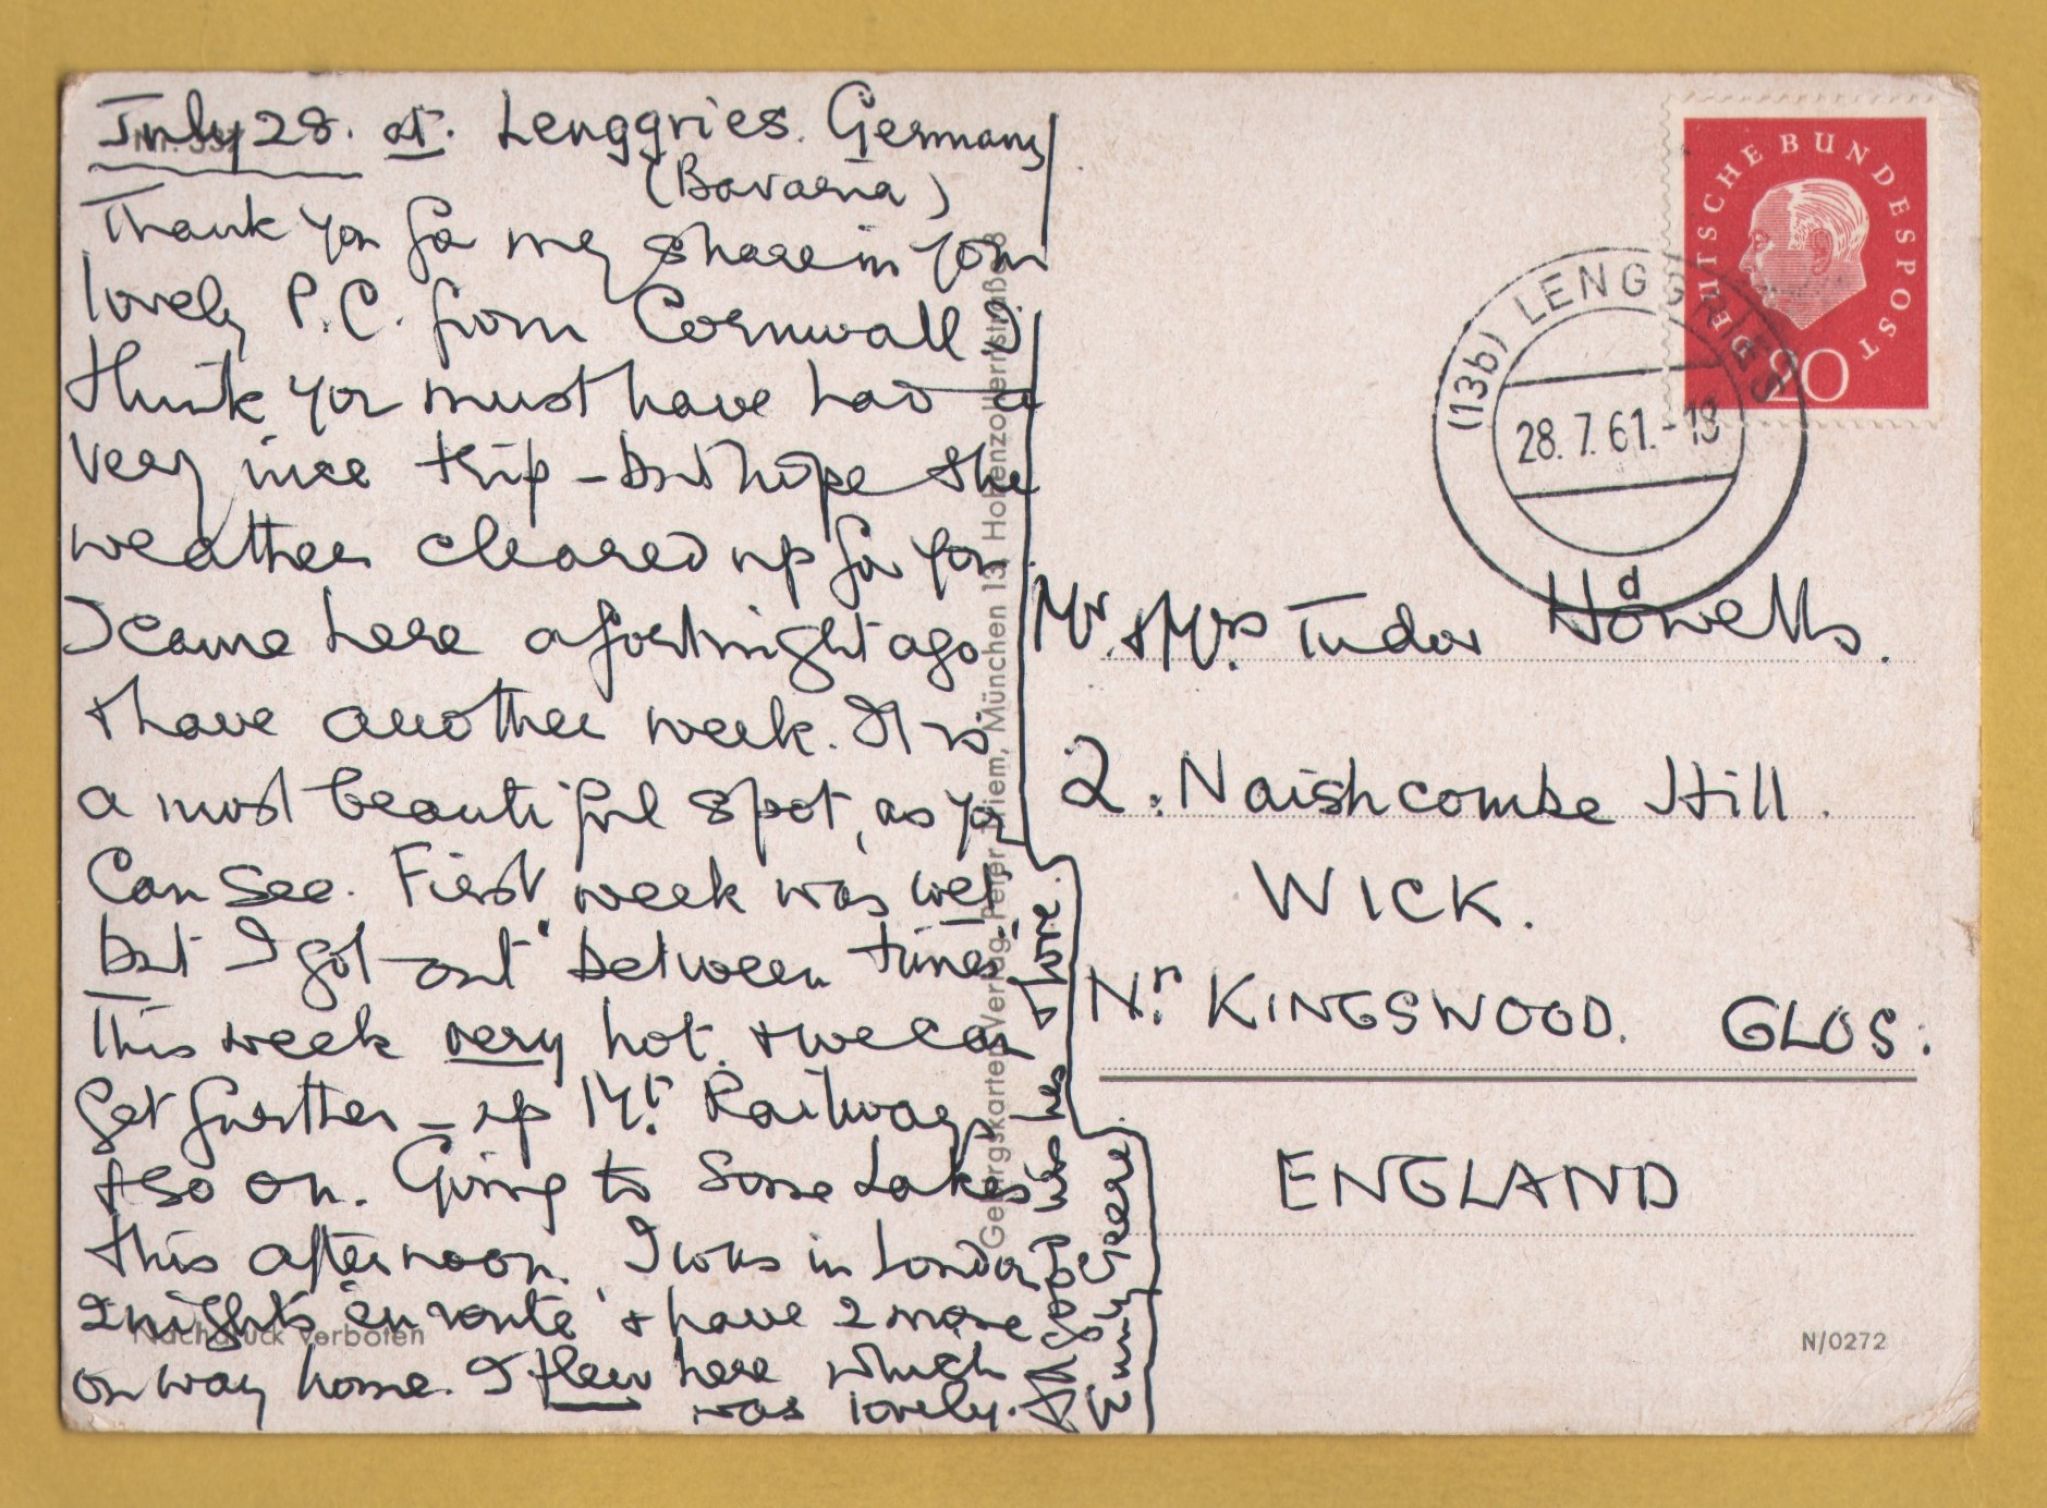 July 28. at. Lenggries. Germany
(Bavaria)
Thank you for my share in your
lovely P.C. from Cornwall. I
think you must have had a
very nice trip - but hope the
weather cleared up for you.
I came here a fortnight ago
+ have another week. It is
a most beautiful spot, as you
can see. First week was wet
but I got out "between times"
This week very hot. + we can
get further - up Mt. Railway
+ so on. Going to some Lakes
this afternoon. I was in London
2 nights 'en route' + have 2 more
on way home. I flew here which
was lovely.
Nachdruck verboten
Gebirgskarten-Verlag Peter Riem, München 13, Hohenzollernstraße
DEUTSCHE BUNDESPOST
20
(13b) LENGGRIES
28.7.61.-18
d
Mr. + Mrs. Tudor Howells.
2. Naishcombe Hill.
WICK.
Nr. KINGSWOOD. GLOS:
ENGLAND
N/0272